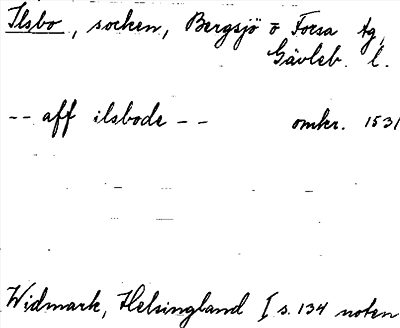 Ilsbo, socken, Bergsjö o Forsa tg,
Gävleb. l.
-- aff ilsbode -- omkr. 1531
Widmark, Helsingland I s. 134 noten